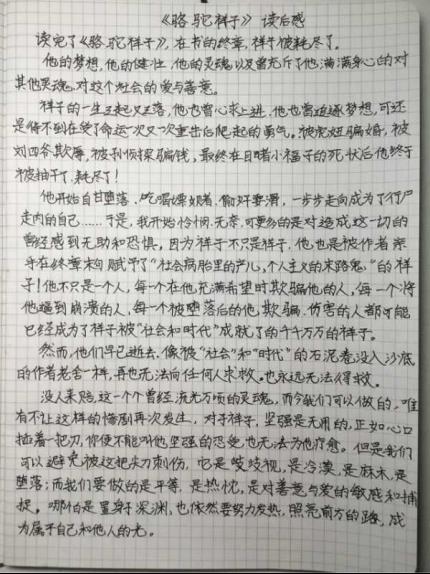 《骆驼祥子》读后感
读完了《骆驼祥子》,在书的终章,祥子被耗尽了。
他的梦想,他的健壮,他的灵魂以及曾充斥了他满满身心的对
其他灵魂,对这个社会的爱与善意。
祥子的一生三起又三落,他也曾心求上进,他也曾追逐梦想,可还
是得不到在受了命运一次又一次重击后爬起的勇气。被虎妞骗婚,被
刘四爷欺辱,被孙侦探骗钱,最终在目睹小福子的死状后他终于
被抽干了,耗尽了!
他开始自甘堕落,吃喝嫖赌,偷奸耍滑,一步步走向成为了行尸
走肉的自己……于是,我开始怜悯,无奈,可更多的是对造成这一切的
曾经感到无助和恐惧。因为祥子不只是祥子,他也是被作者
于在终章末句赋予了“社会病胎里的产儿,个人主义的末路鬼”的祥
子!他不只是一个人,每一个在他充满希望时欺骗他的人,每一个将
他逼到崩溃的人,每一个被堕落后的他欺骗,伤害的人都可能
已经成为了祥子被“社会和时代”成就了的千千万万的祥子。
然而,他们早已逝去,像被“社会”和“时代”的石泥卷没入沙底
的作者老舍一样,再也无法向任何人求救。也永远无法得救。
没人来赔这一个个曾经流光万顷的灵魂,而今我们可以做的,唯
有不让这样的悲剧再次发生,对于祥子,坚强是无用的,正如心口
插着一把刃,你便不能叫他坚强的忍受,也无法为他疗愈。但是我们
可以避免被这把长刀刺伤,它是歧视,是冷漠,是麻木,是
堕落;而我们要做的是平等,是热忱,是对善意与爱的敏感和捕
捉。哪怕是置身于深渊,也依然要努力发热,照亮前方的路,成
为属于自己和他人的光。